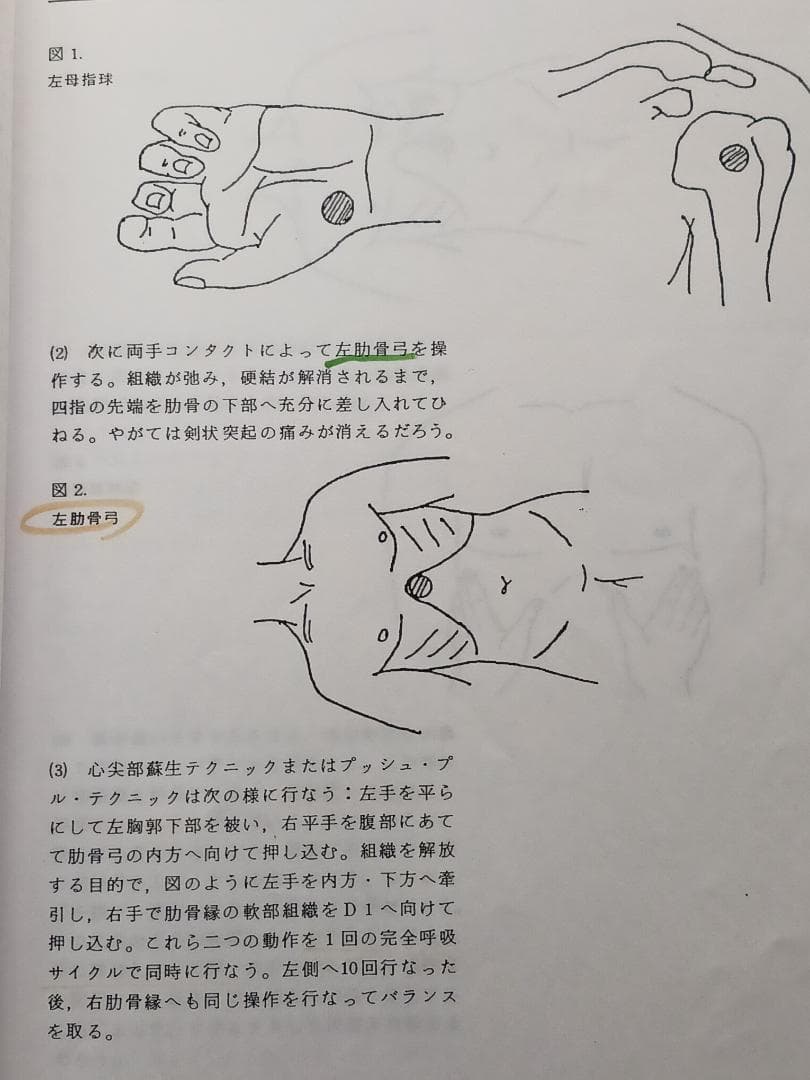 図1.
左母指球
(2) 次に両手コンタクトによって左肋骨弓を操
作する。組織が弛み，硬結が解消されるまで，
四指の先端を肋骨の下部へ充分に差し入れてひ
ねる。やがては剣状突起の痛みが消えるだろう。
図2.
左肋骨弓
(3) 心尖部蘇生テクニックまたはプッシュ・プ
ル・テクニックは次の様に行なう：左手を平ら
にして左胸郭下部を被い，右平手を腹部にあて
て肋骨弓の内方へ向けて押し込む。組織を解放
する目的で，図のように左手を内方・下方へ牽
引し，右手で肋骨縁の軟部組織をD1へ向けて
押し込む。これら二つの動作を1回の完全呼吸
サイクルで同時に行なう。左側へ10回行なった
後，右肋骨縁へも同じ操作を行なってバランス
を取る。